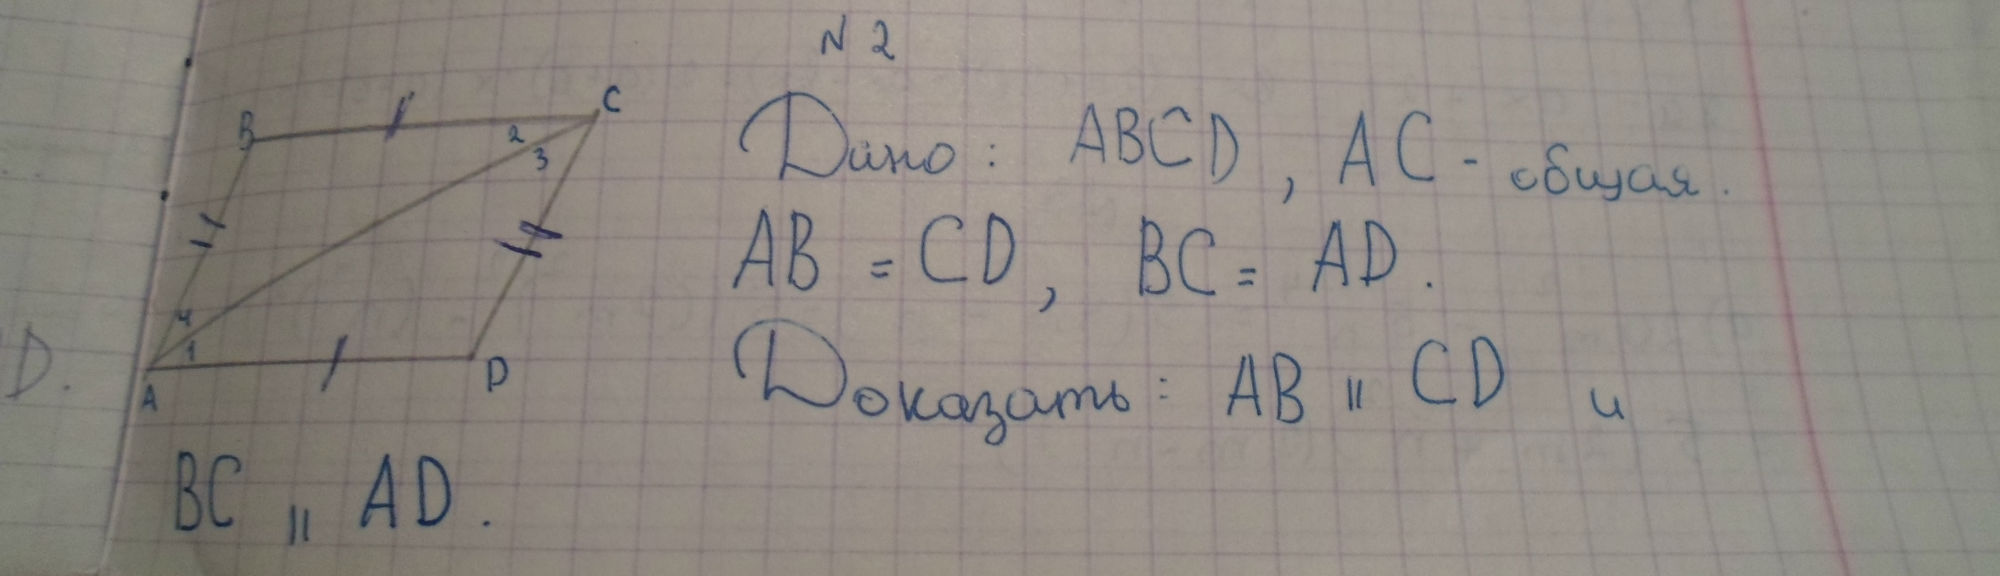 N 2
B
C
2
3
4
1
A
D
D.
Дано: ABCD, AC - общая.
AB = CD, BC = AD.
Доказать: AB || CD и
BC || AD.